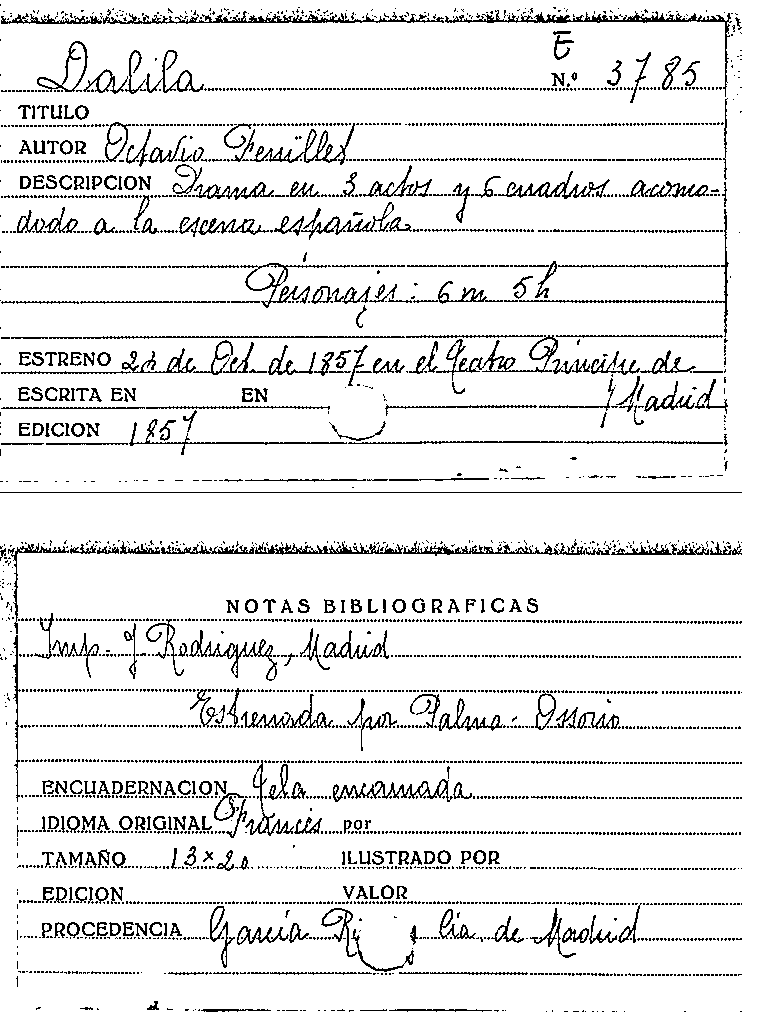 E
Dalila N.º 3785
TITULO
AUTOR Octavio Feuillet
DESCRIPCION Drama en 3 actos y 6 cuadros acomo-
dado a la escena española
Personajes: 6 m 5 h
ESTRENO de Oct. de 1857 en el Teatro Principe de
ESCRITA EN EN Madrid
EDICION 1857
NOTAS BIBLIOGRAFICAS
Imp. J Rodriguez, Madrid
Estrenada por Palma - Ossorio
ENCUADERNACION Tela encarnada
IDIOMA ORIGINAL Francés por
TAMAÑO 13 × 20 ILUSTRADO POR
EDICION VALOR
PROCEDENCIA García Cía. de Madrid